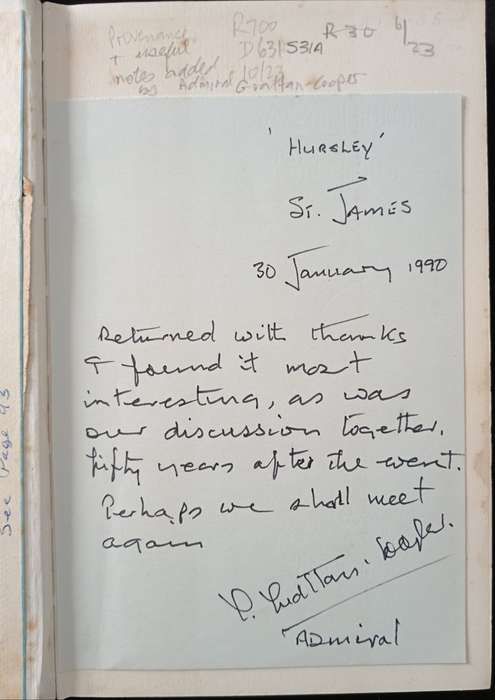 Provenance R700 R30 6/23
+ useful D631531A
notes added 10/23
by Admiral Grattan-Cooper
'HURSLEY'
ST. JAMES
30 January 1990
Returned with thanks
& found it most
interesting, as was
our discussion together,
fifty years after the event.
Perhaps we shall meet
again
Grattan-Cooper.
ADmiral
See Page 93